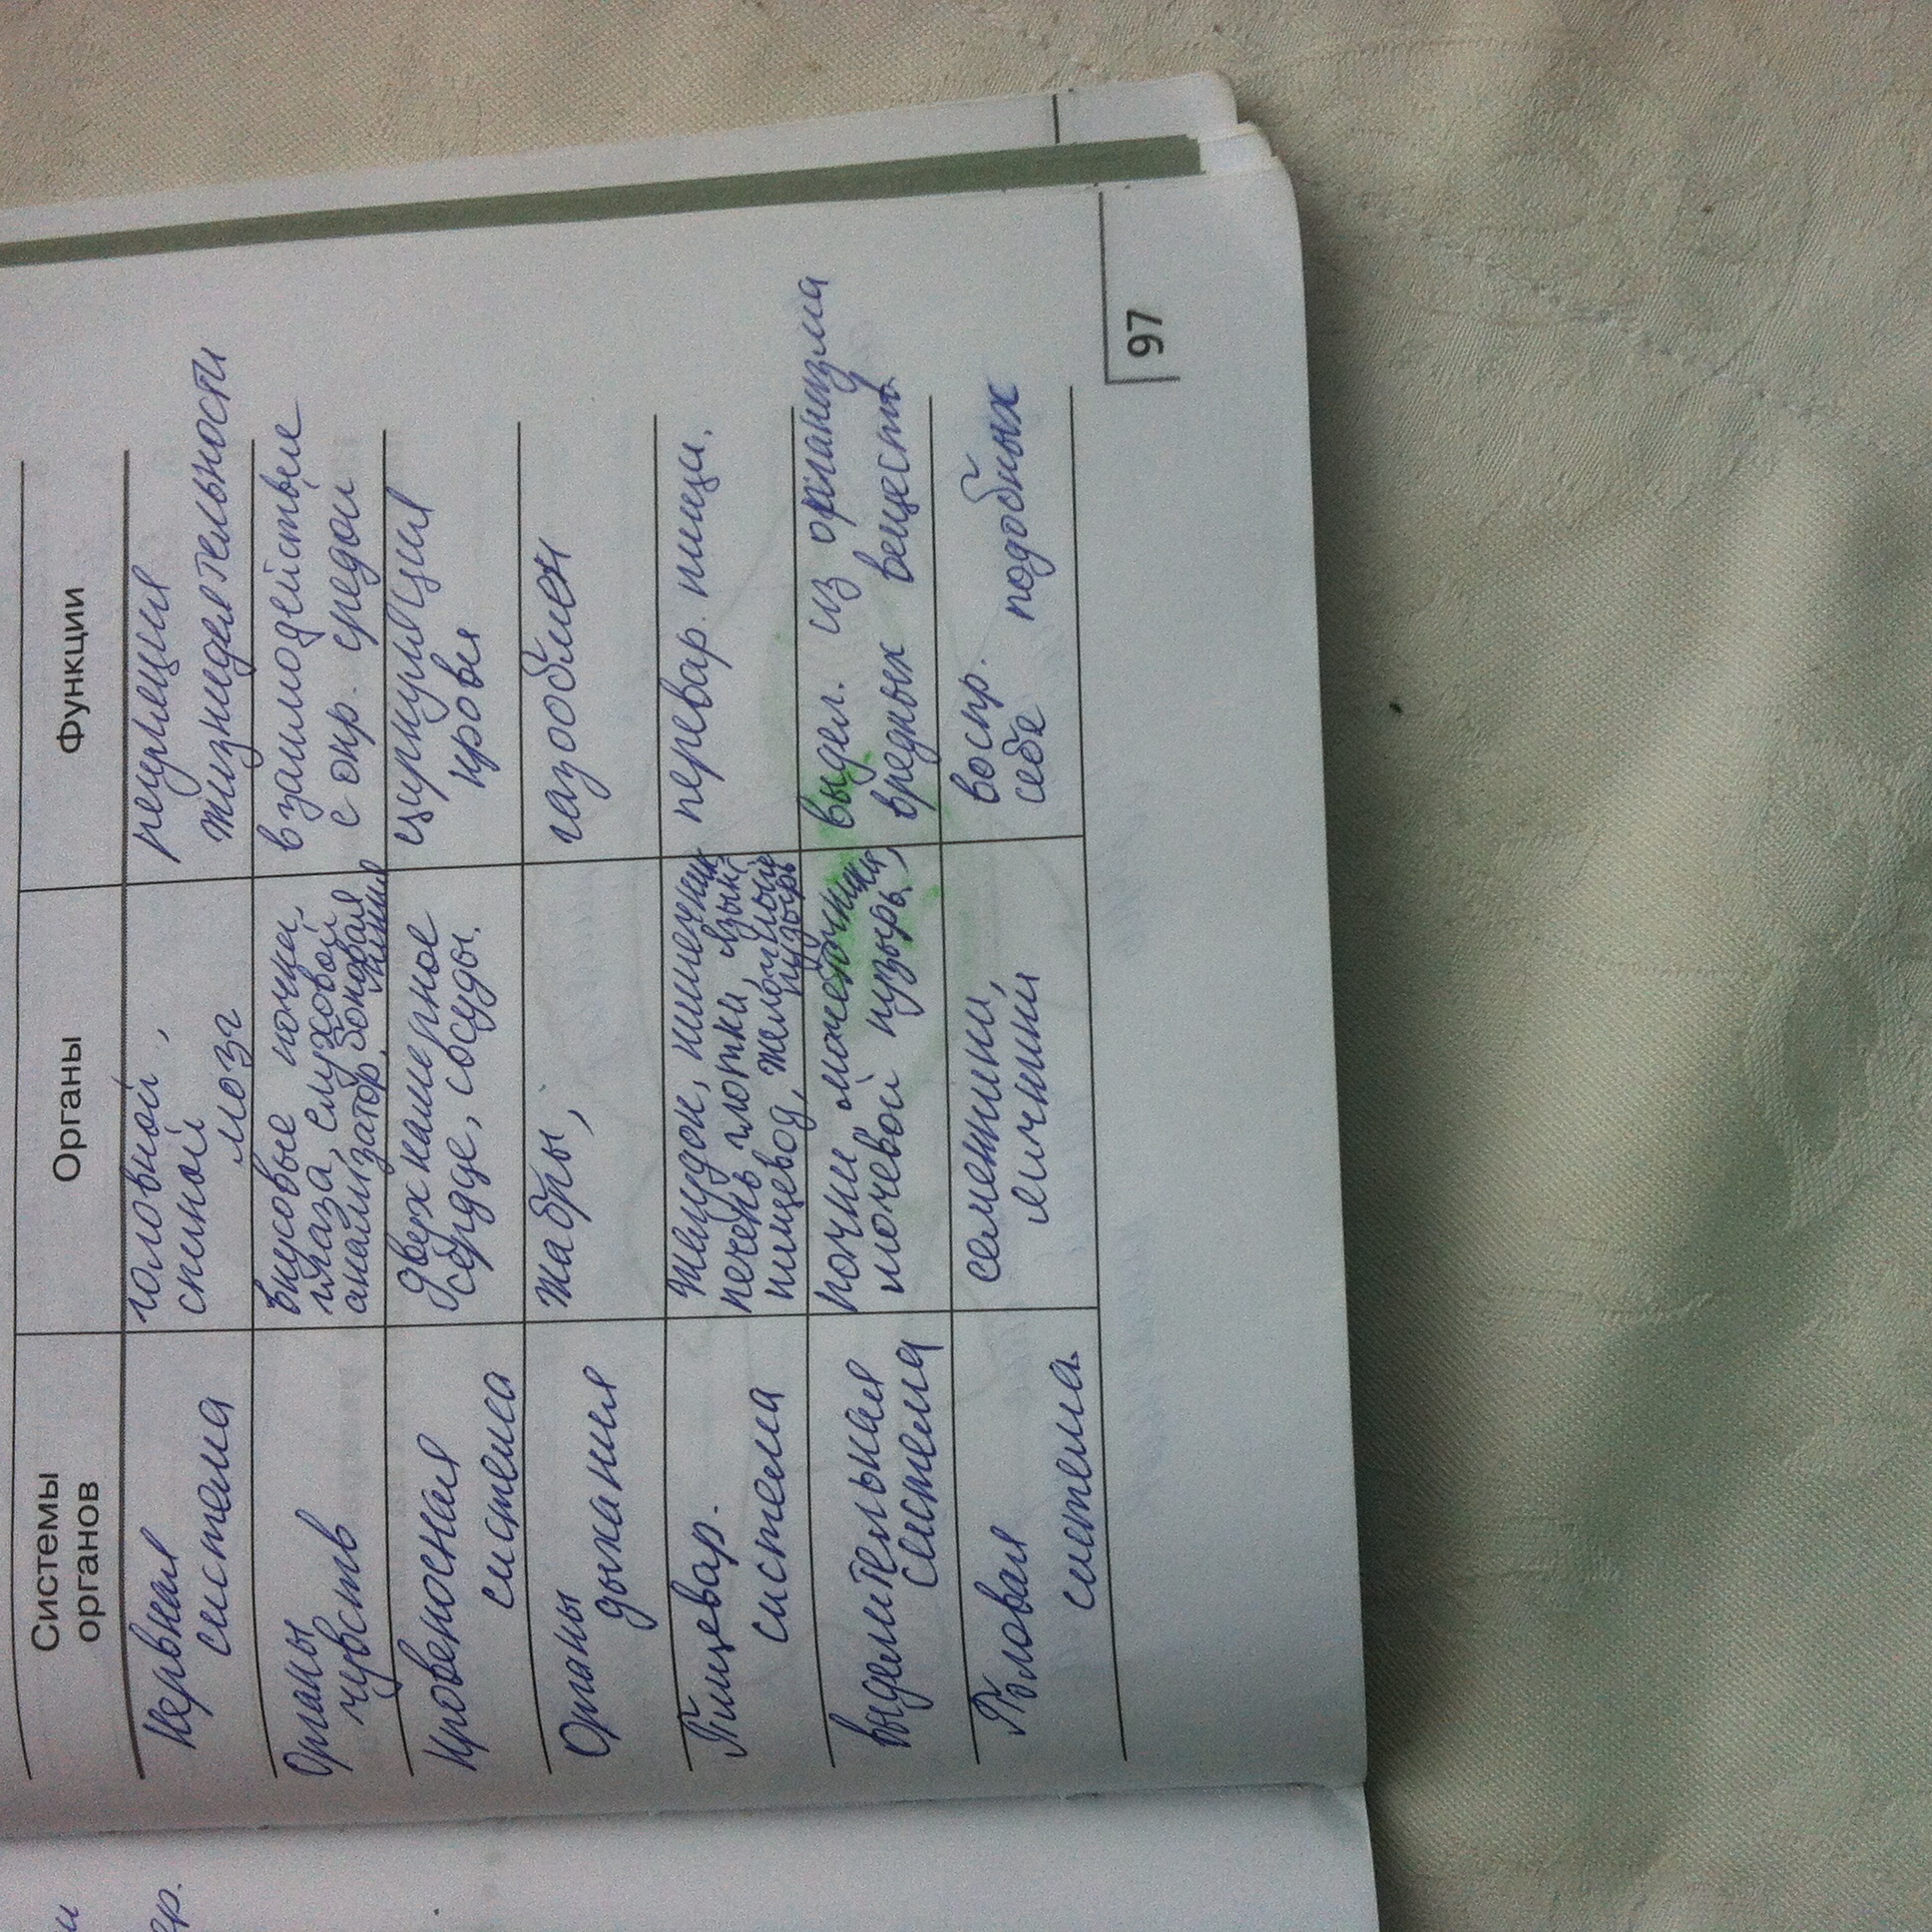 Системы органов
Органы
Функции
Нервная
система
головной,
спинной
мозг
регуляция
жизнедеятельности
Органы
чувств
вкусовые почки,
глаза, слуховой
анализатор, боковая
линия
взаимодействие
с окр. средой
Кровеносная
система
двухкамерное
сердце, сосуды.
циркуляция
крови
Органы
дыхания
жабры,
газообмен
Пищевар.
система
желудок, кишечник
печень глотка, язык
пищевод, желочный
пузырь
перевар. пищи.
выделительная
система
почки мочеточники,
мочевой пузырь,
выдел. из организма
вредных веществ
Половая
система
семенники,
яичники
воспр. подобных
себе
97